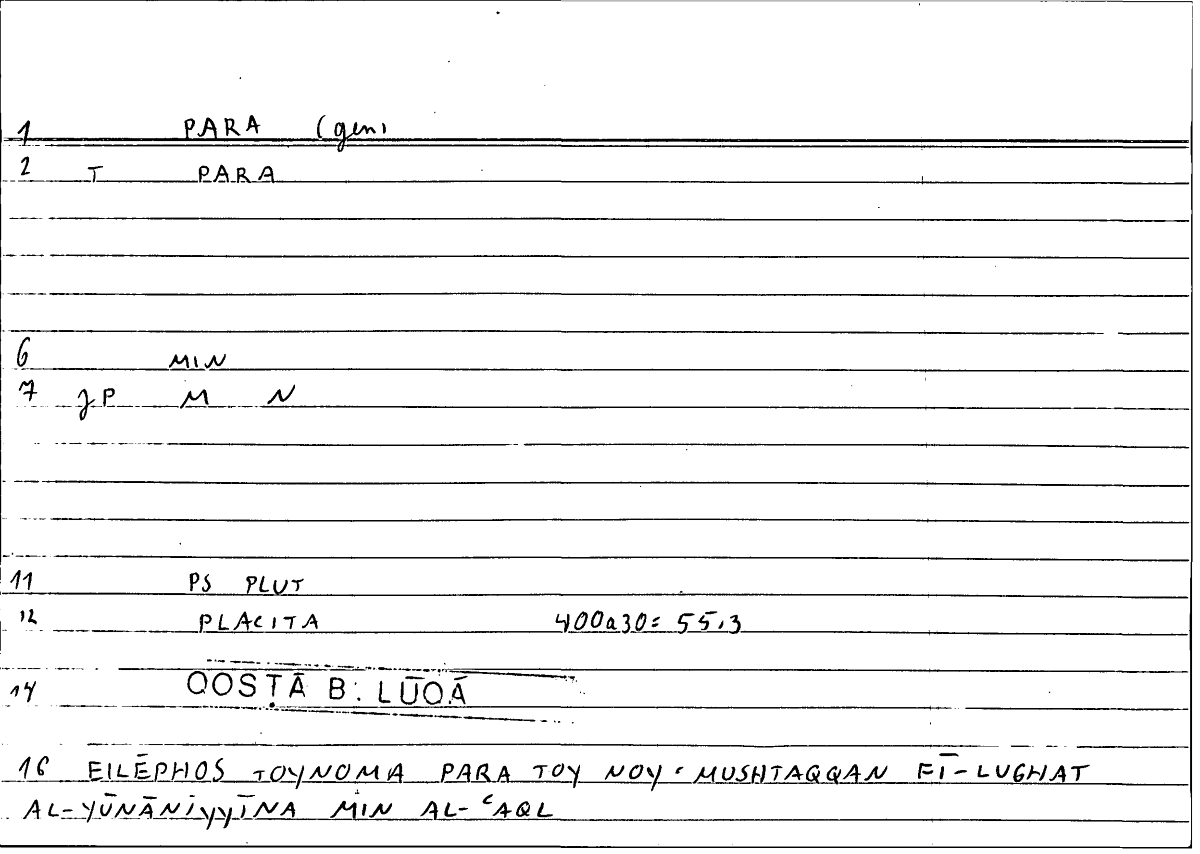 1 PARA (gen)
2 T PARA
6 MIN
7 JP M N
11 PS PLUT
12 PLACITA 400a30= 55,3
14 QOSṬĀ B. LŪQĀ
16 EILĒPHOS TOYNOMA PARA TOY NOY = MUSHTAQQAN FĪ-LUGHAT
AL-YŪNĀNIYYĪNA MIN AL-ʿAQL